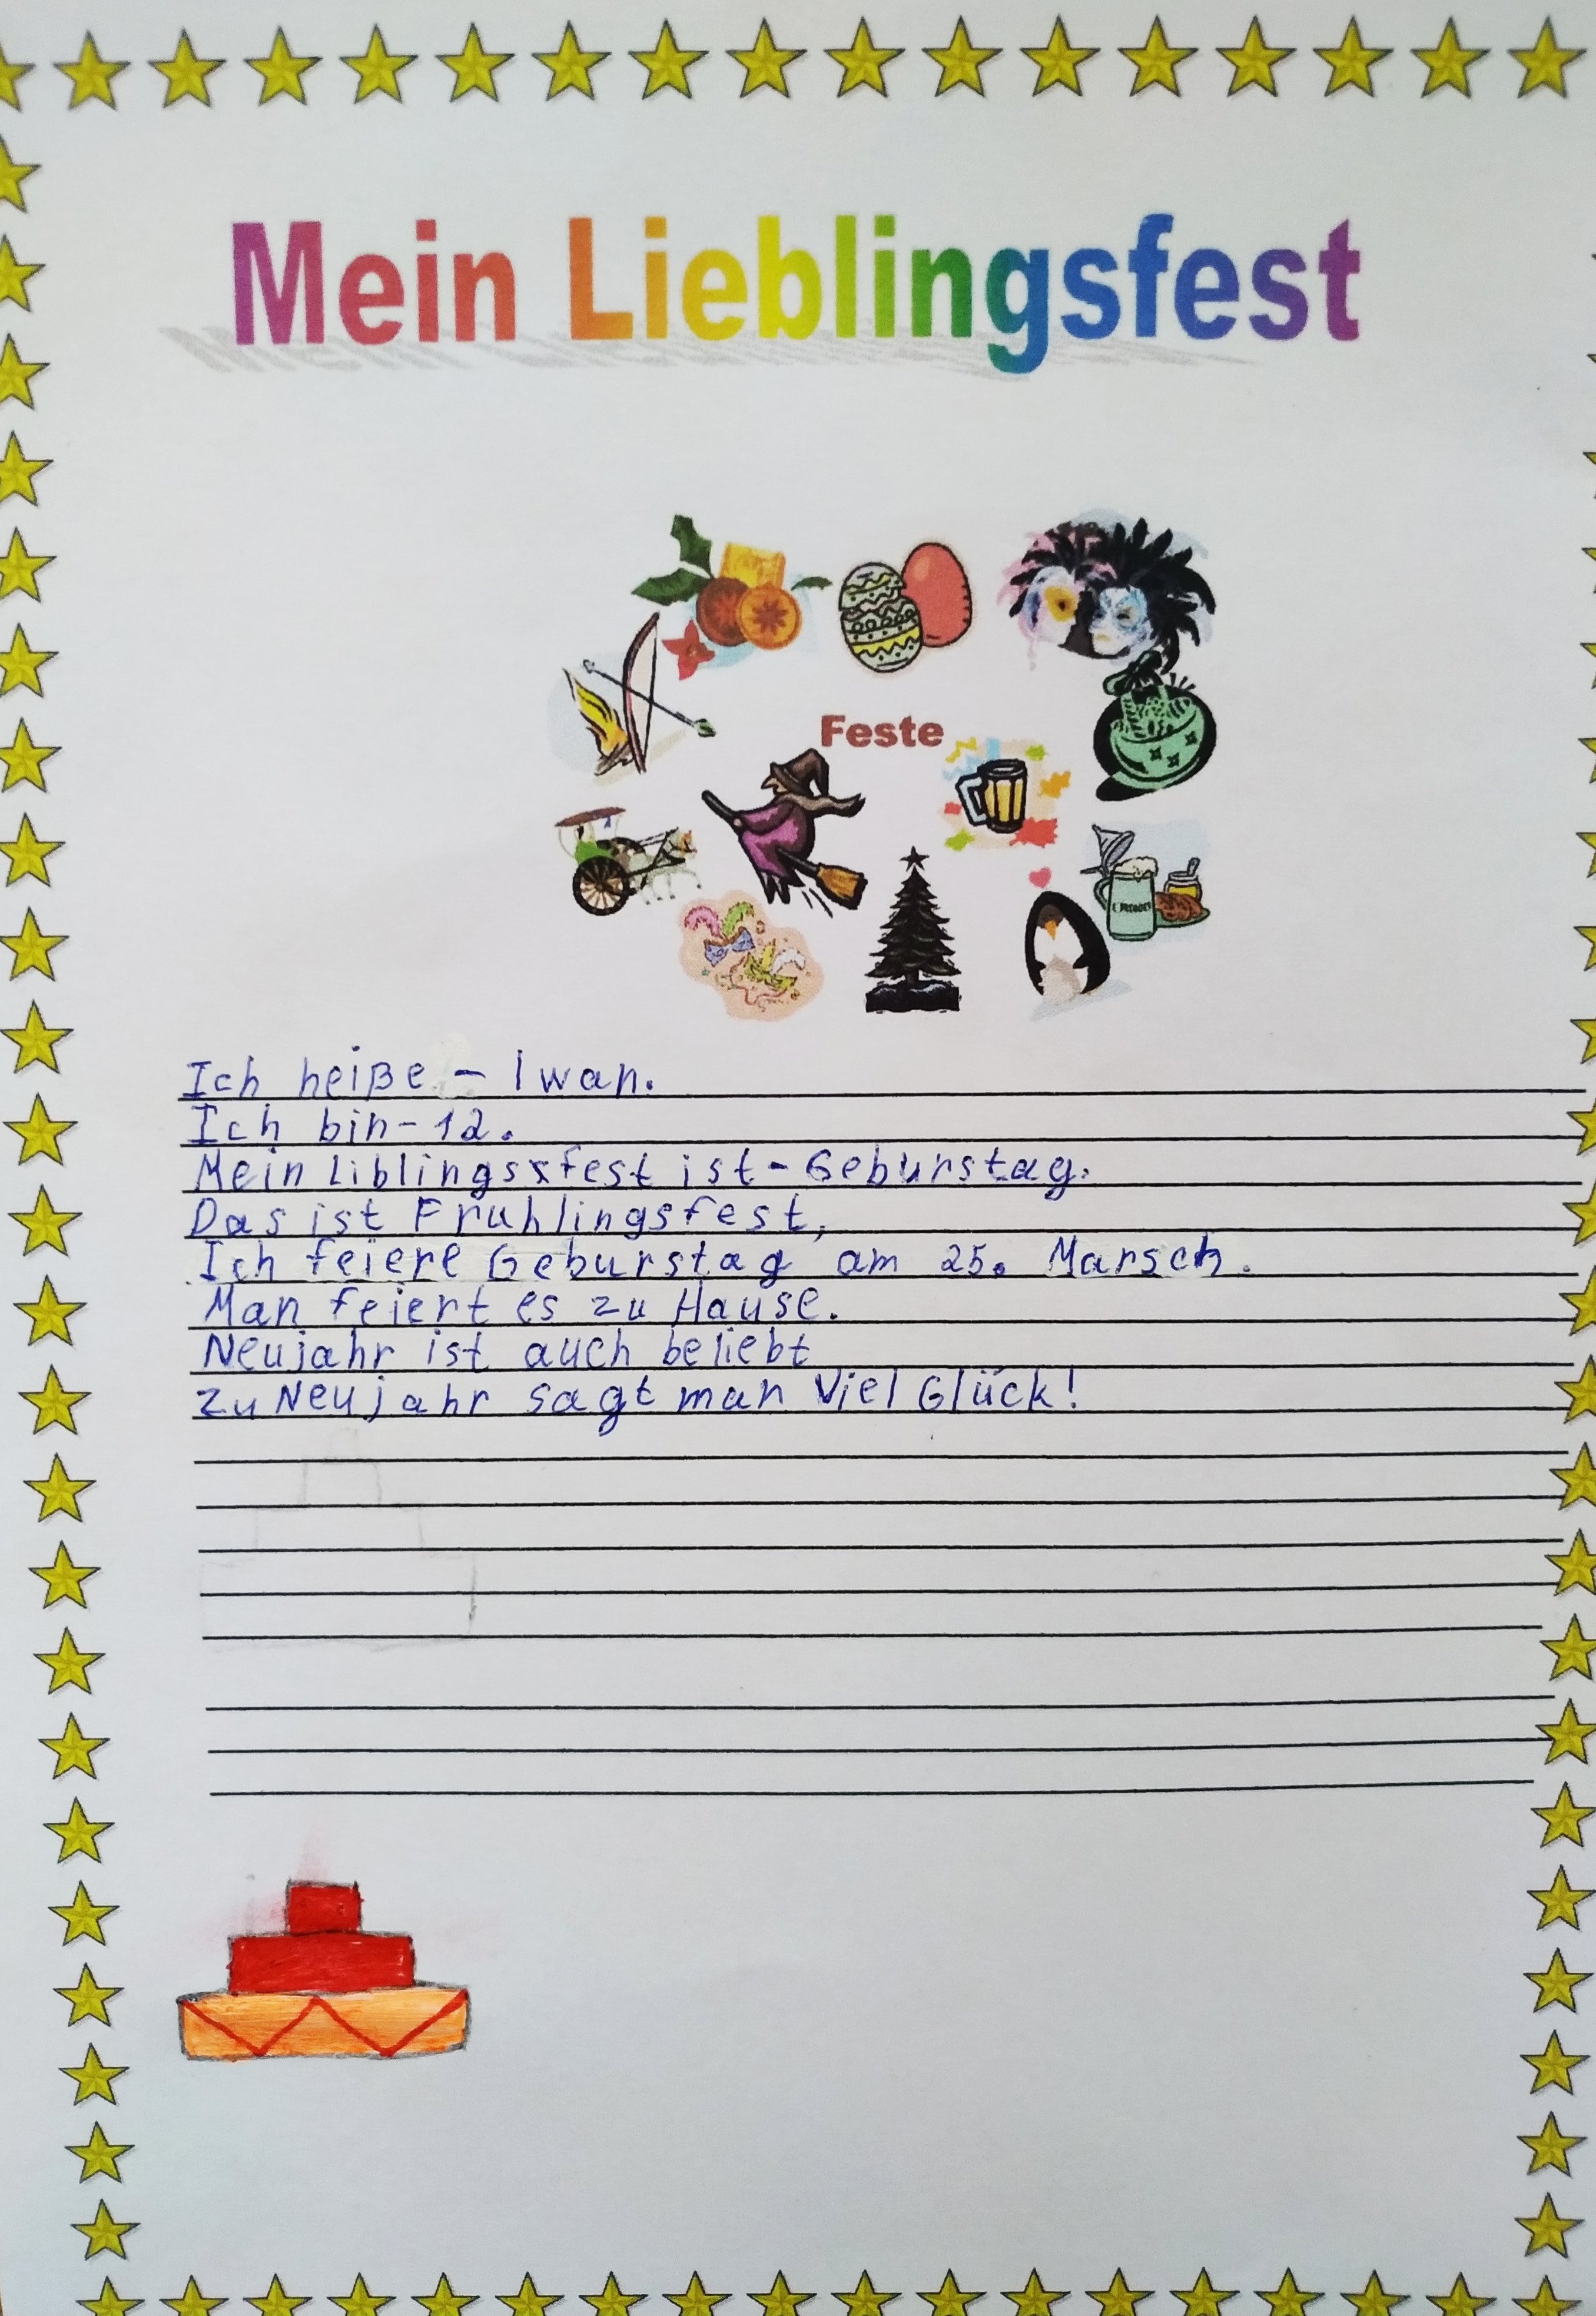 Mein Lieblingsfest
Feste
Ich heiße - Iwan.
Ich bin - 12.
Mein Liblingsxfest ist - Geburstag.
Das ist Fruhlingsfest,
Ich feiere Geburstag am 25. Marsch.
Man feiert es zu Hause.
Neujahr ist auch beliebt
Zu Neujahr sagt man Viel Glück!